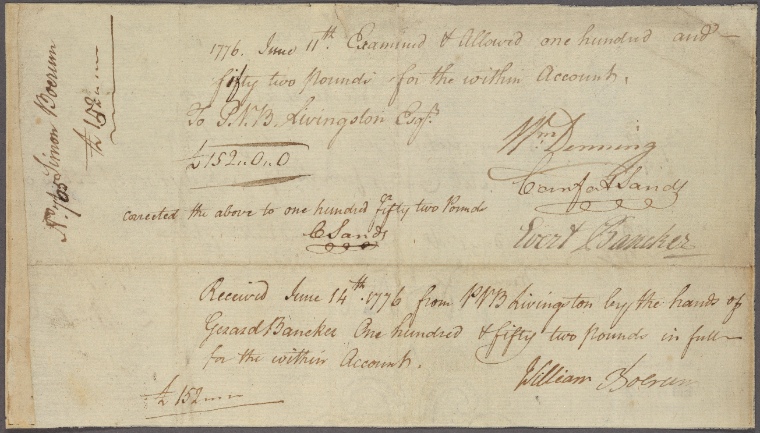 1776. June 11th. Examined & Allowed one hundred and
fifty two Pounds for the within Account.
To P.V.B. Livingston Esqr.
£152.,0.,0
Wm. Denning
Comfort Sands
corrected the above to one hundred fifty two Pounds
C Sands
Evert Bancker
Received June 14th. 1776 from PVB Livingston by the hands of
Gerard Bancker One hundred & fifty two Pounds in full
for the within Account.
William Boerum
£152
Simon Boerum
£152